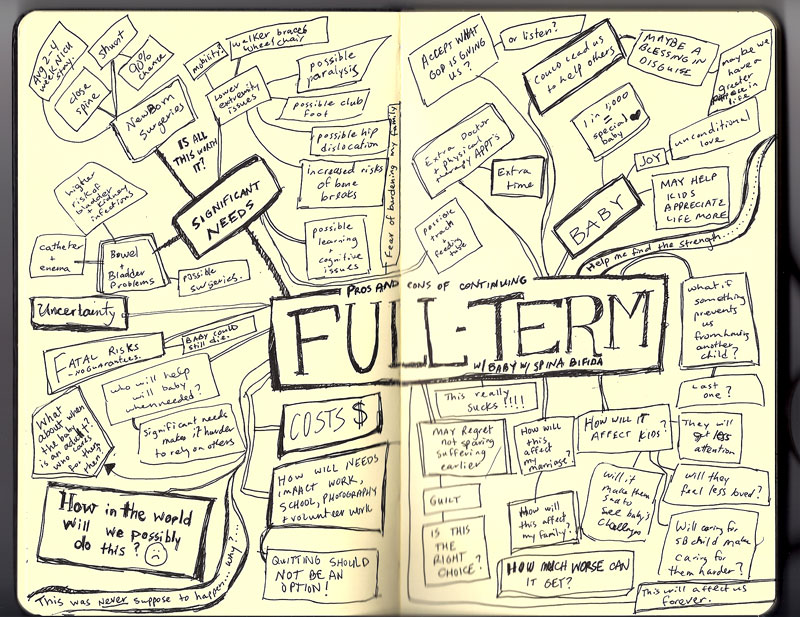 Aug 2-4
week NICU
stay.
shunt
90%
chance
close
spine
NewBorn
Surgeries
IS ALL
THIS WORTH
IT?
mobility?
walker braces
wheelchair
Lower
extremity
issues
possible
paralysis
possible club
foot
possible hip
dislocation
increased risks
of bone
breaks
possible
learning
+
cognitive
issues
Fear of burdening my family
SIGNIFICANT
NEEDS
higher
risk of
bladder
+ kidney
infections
catheter
+
enema
Bowel
+
Bladder
Problems
possible
surgeries.
Uncertainty
FATAL RISKS
-NO Guarantees.
BABY COULD
still die.
who will help
will baby
when needed?
What
about when
the baby
is an adult?
who cares
for them
then?
Significant needs
make it harder
to rely on others
How in the world
will we possibly
do this?
This was never suppose to happen... why?...
COSTS $
HOW WILL NEEDS
IMPACT WORK,
SCHOOL, PHOTOGRAPHY
+ volunteer work
QUITTING SHOULD
NOT BE AN
OPTION!
PROS AND CONS OF CONTINUING
FULL-TERM
W/ BABY W/ SPINA BIFIDA
ACCEPT WHAT
GOD IS GIVING
US?
or listen?
Could lead us
to help others
MAYBE A
BLESSING IN
DISGUISE
maybe we
have a
greater
purpose in
life
1 in 1,000
=
special
baby
unconditional
love
JOY
Extra Doctor
+ physical
therapy APPT's
Extra
time
possible
trach
+
feeding
tube
BABY
MAY HELP
KIDS
APPRECIATE
LIFE MORE
Help me find the strength....
what if
something
prevents
us
from having
another
child?
Last
one?
This really
sucks!!!!
MAY Regret
not sparing
suffering
earlier
GUILT
IS THIS
THE
RIGHT
CHOICE?
How will
this
affect my
marriage?
How will
this affect
my family.
HOW WILL IT
AFFECT KIDS?
They will
get less
attention
will it
make them
sad to
see baby's
challenges
will they
feel less loved?
Will caring for
SB child make
caring for
them harder?
HOW MUCH WORSE CAN
IT GET?
This will affect us
forever.